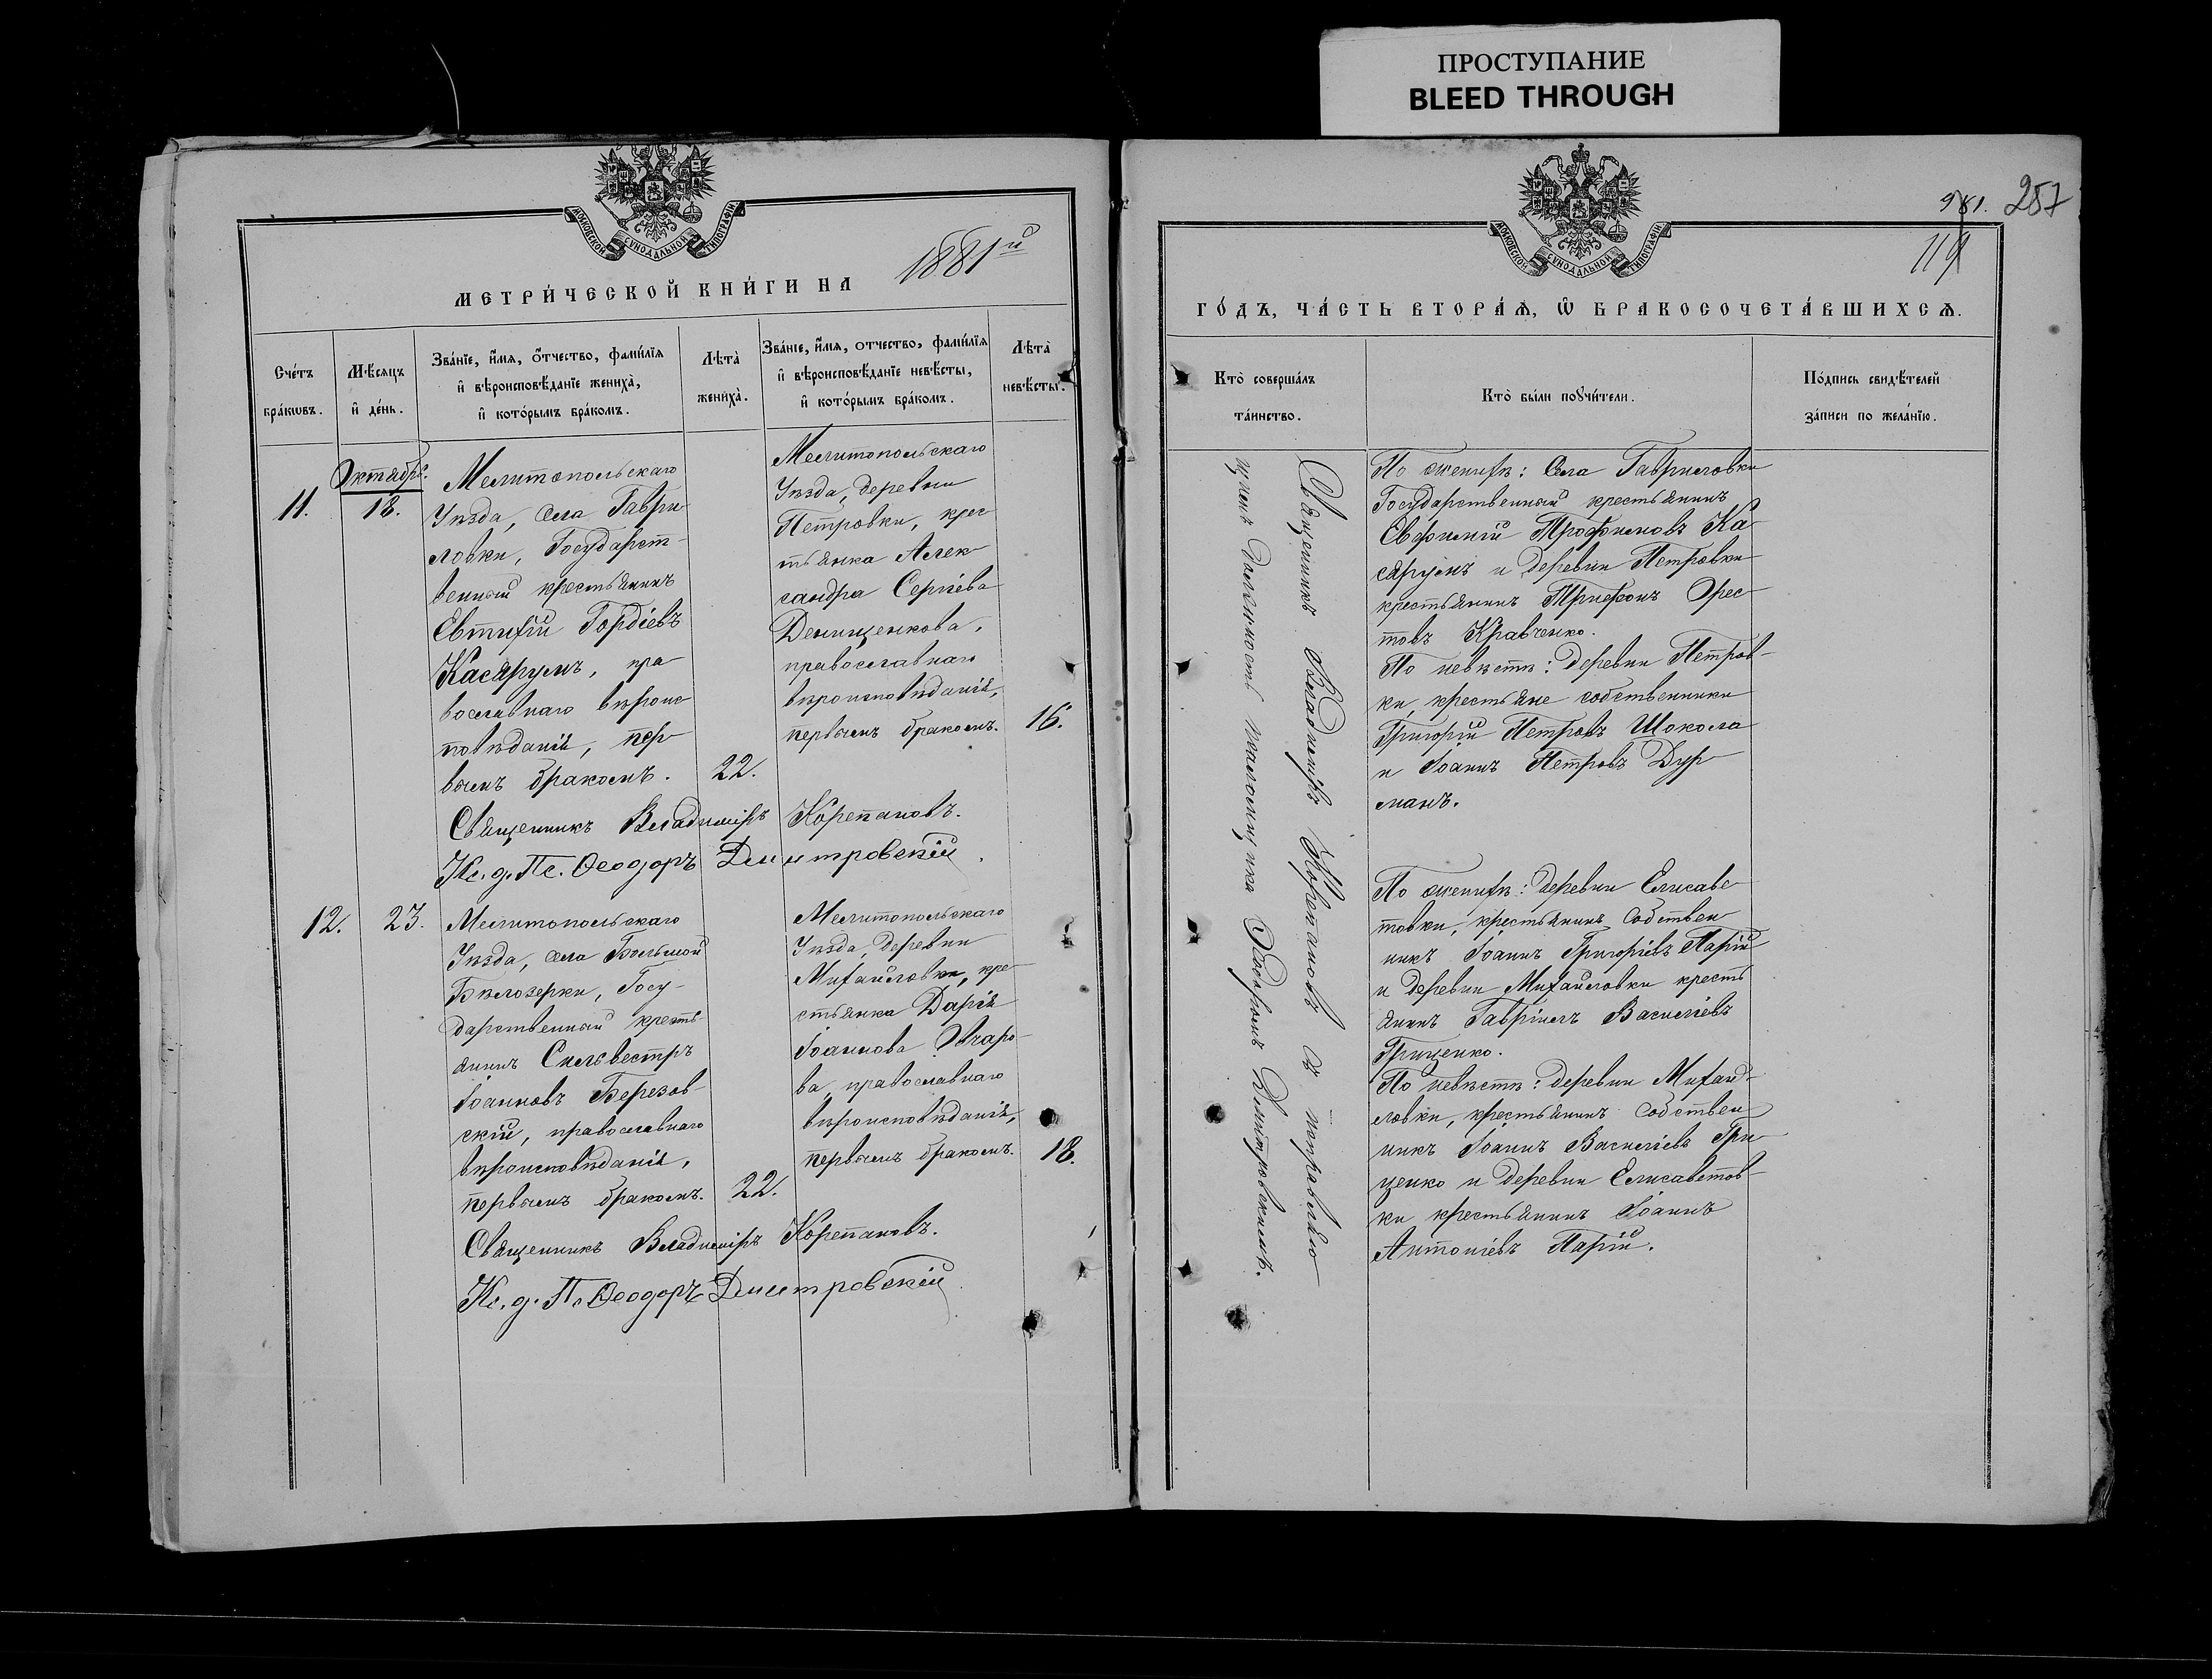 ПРОСТУПАНИЕ
BLEED THROUGH
МОСКОВСКОЙ СѴНОДАЛЬНОЙ ТИПОГРАФІИ
МЕТРИ́ЧЕСКОЙ КНИ́ГИ НА 1881й
Сче́тъ бра́кωвъ.
Мѣ́сяцъ и҆ де́нь.
Зва́нїе, и҆́мя, ѻ҆́тчество, фами́лїя
и҆ вѣроисповѣ́данїе жениха̀,
и҆ кото́рымъ бра́комъ.
Лѣта̀ жениха̀.
Зва́нїе, и҆́мя, отчество, фами́лїя
и҆ вѣроисповѣ́данїе невѣ́сты,
и҆ кото́рымъ бра́комъ.
Лѣта̀ невѣ́сты.
Октябр.
11.
18.
Мелитопольскаго
Уѣзда, села Гаври
ловки, Государст-
венный крестьянинъ
Евтихій Гордіевъ
Касярумъ, пра
вославнаго вѣроис
повѣданія, пер
вымъ бракомъ.
22.
Мелитопольскаго
Уѣзда, деревни
Петровки, крес
тьянка Алек
сандра Сергіева
Денищенкова,
православнаго
вѣроисповѣданія,
первымъ бракомъ.
16.
Священникъ Владиміръ Корепановъ.
Ис. д. Пс. Ѳеодоръ Дмитровскій.
12.
23.
Мелитопольскаго
Уѣзда, села Большой
Бѣлозерки, Госу-
дарственный кресть
янинъ Сильвестръ
Іоанновъ Березов
скій, православнаго
вѣроисповѣданія,
первымъ бракомъ.
22.
Мелитопольскаго
Уѣзда, деревни
Михайловки, кре
стьянка Дарія
Іоаннова Овчаро-
ва, православнаго
вѣроисповѣданія,
первымъ бракомъ.
18.
Священникъ Владиміръ Корепановъ.
Ис. д. Пс. Ѳеодоръ Дмитровскій
981. 257
119
МОСКОВСКОЙ СѴНОДАЛЬНОЙ ТИПОГРАФІИ
ГО́ДЪ, ЧА́СТЬ ВТОРА́Ѧ, Ѡ҆ БРАКОСОЧЕТА́ВШИХСѦ.
Кто̀ соверша́лъ та́инство.
Кто̀ бы́ли поꙋчи́тели.
По́дпись свидѣ́телей за́писи по жела́нїю.
Священникъ Владиміръ Корепановъ съ исправляю
щимъ должность псаломщика Ѳеодоромъ Дмитровскимъ.
По женихѣ: села Гавриловки
Государственный крестьянинъ
Евфимій Трофимовъ Ка
сярумъ и деревни Петровки
крестьянинъ Трифонъ Орес
товъ Кравченко.
По невѣстѣ: деревни Петров-
ки, крестьяне собственники
Григорій Петровъ Шокола
и Іоаннъ Петровъ Дур
манъ.
По женихѣ: деревни Елисаве
товки, крестьянинъ собствен
никъ Іоаннъ Григоріевъ Парій
и деревни Михайловки кресть
янинъ Гавріилъ Василіевъ
Гриценко.
По невѣстѣ: деревни Михай-
ловки, крестьянинъ собствен
никъ Іоаннъ Василіевъ Гри
ценко и деревни Елисаветов-
ки крестьянинъ Іоаннъ
Антоніевъ Парій.